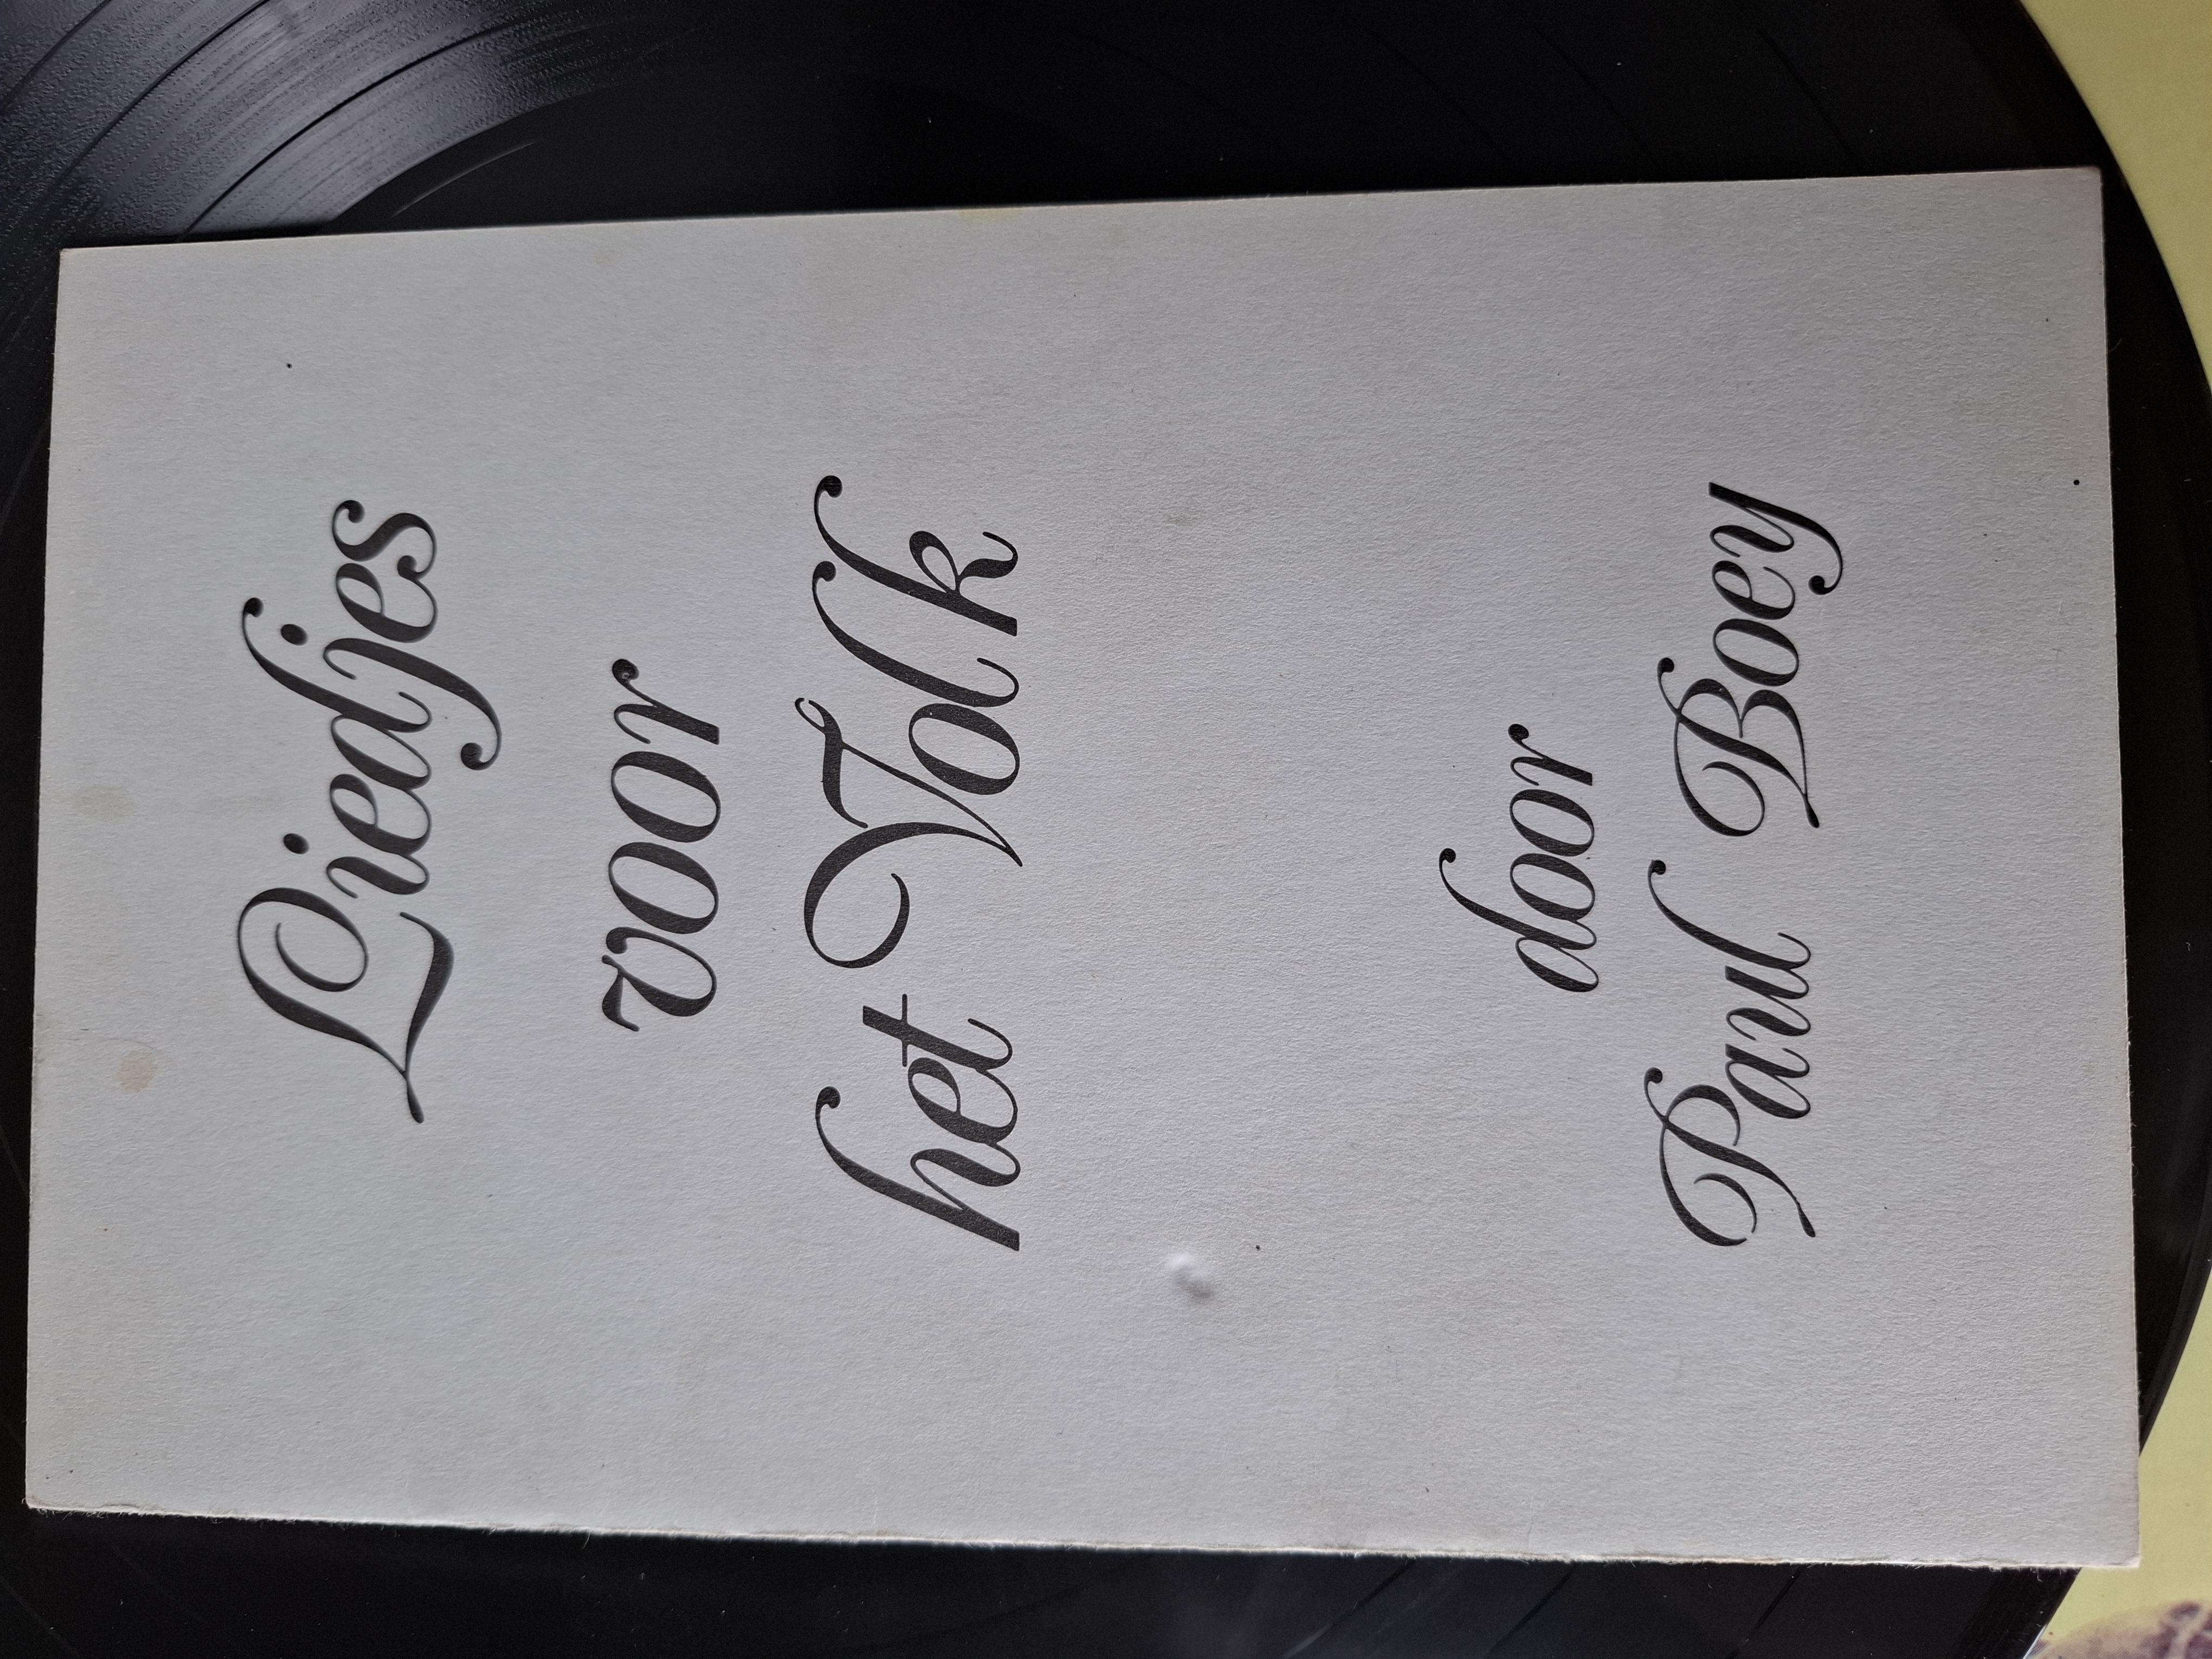 Liedjes
voor
het Volk
door
Paul Boey